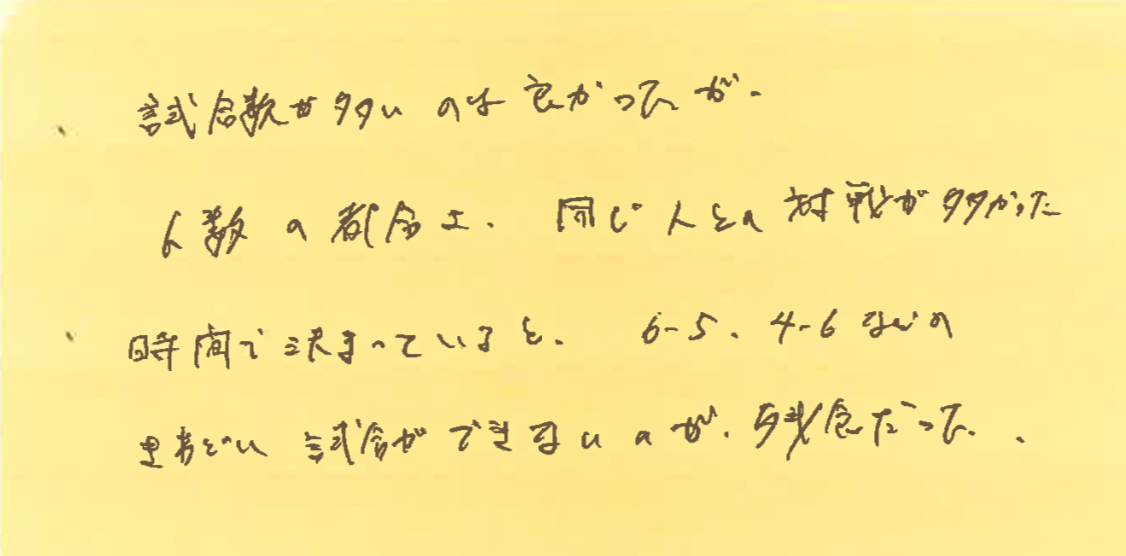 ・試合数が多いのは良かったが、
人数の都合上、同じ人との対戦が多かった
・時間で決まっていると、6-5、4-6などの
きわどい試合ができないのが、残念だった、